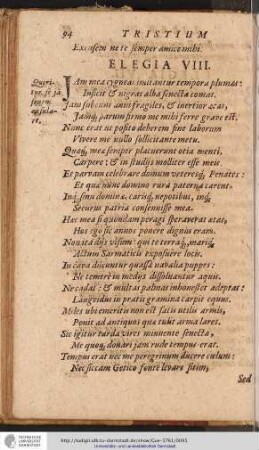 94 TRISTIUM
Excusem ne te semper amice mihi.
ELEGIA VIII.
Queri-
tur, se jā
senem
exsula-
re.
IAm mea cygneas imitantur tempora plumas:
Inficit & nigras alba senecta comas.
Jam subeunt anni fragiles, & inertior ætas,
Jamq; parum firmo me mihi ferre grave est.
Nunc erat ut posito deberem fine laborum
Vivere me nullo sollicitante metu.
Quæq; meæ semper placuerunt otia menti,
Carpere: & in studijs molliter esse meis.
Et parvam celebrare domum veteresq; Penates:
Et quæ nunc domino rura paterna carent.
Inq; sinu dominæ carisq; nepotibus, inq;
Securus patria consenuisse mea.
Hæc mea sic quondam peragi speraverat ætas,
Hos ego sic annos ponere dignus eram.
Non ita dijs visum: qui me terraq; mariq;
Actum Sarmaticis exposuere locis.
In cava ducuntur quassæ navalia puppes:
Ne temere in medijs dissolvantur aquis.
Ne cadat: & multas palmas inhonestet adeptas:
Languidus in pratis gramina carpit equus.
Miles ubi emeritis non est satis utilis armis,
Ponit ad antiquos quæ tulit arma lares.
Sic igitur tarda vires minuente senecta,
Me quoq; donari jam rude tempus erat.
Tempus erat nec me peregrinum ducere cœlum:
Nec siccam Getico fonte levare sitim,
Sed
http://tudigit.ulb.tu-darmstadt.de/show/Gue-5761/0095
Universitäts- und Landesbibliothek Darmstadt